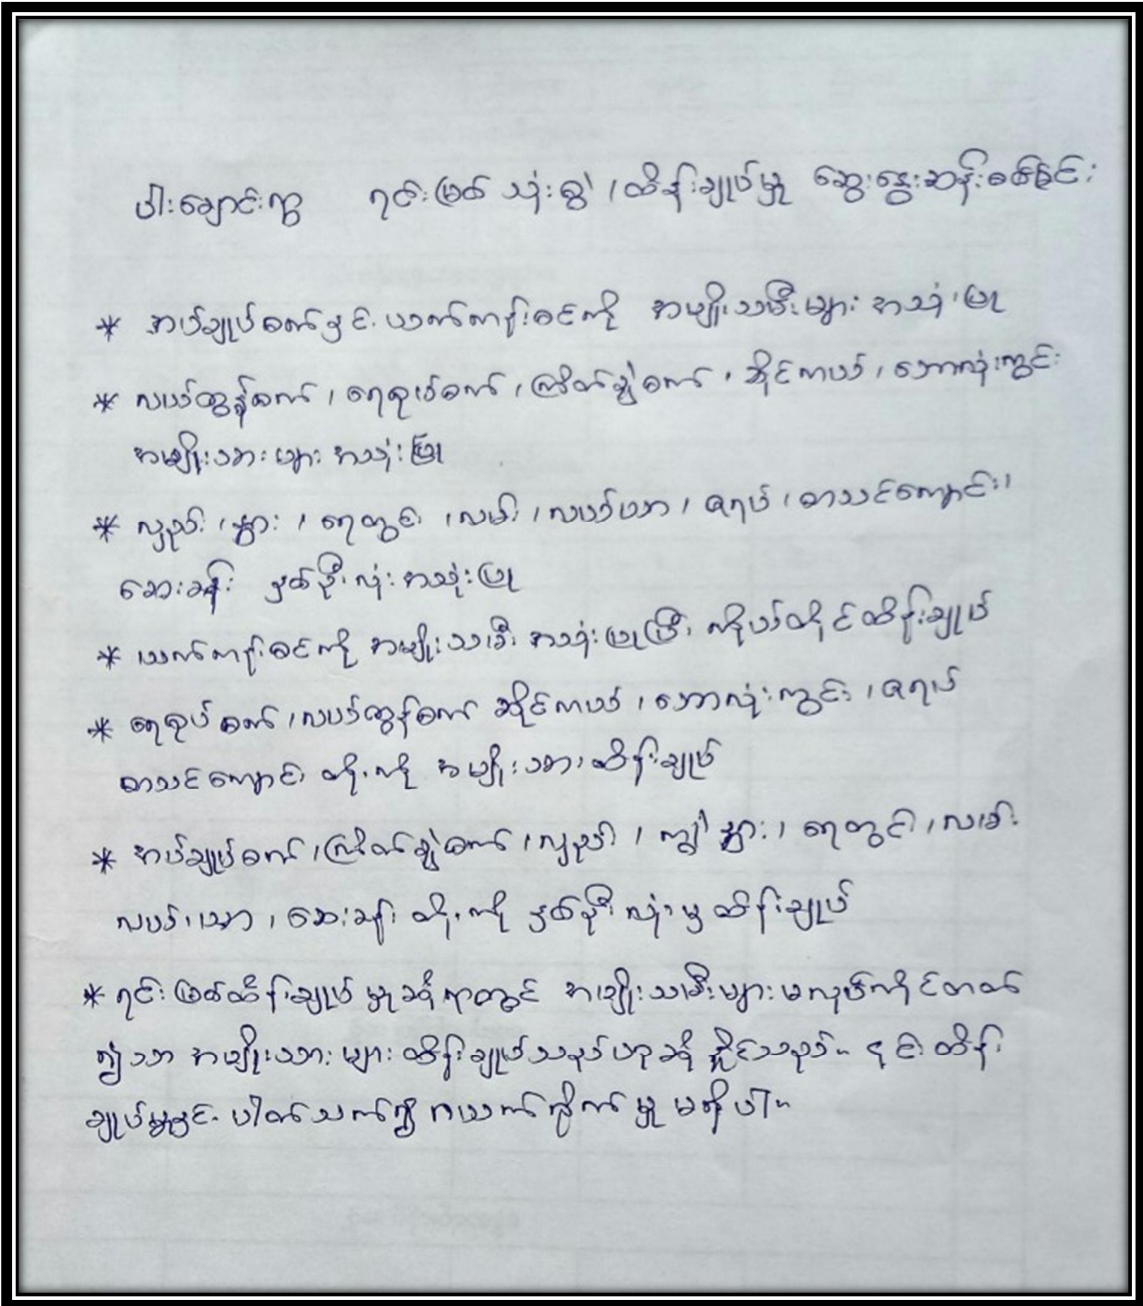 ဝါးချောင်းကွ ရင်းမြစ်သုံးစွဲ၊ထိန်းချုပ်မှု ဆွေးနွေးဆန်းစစ်ခြင်း
* အပ်ချုပ်စက်နှင့် ယက်ကန်းစင်ကို အမျိုးသမီးများ အသုံးပြု
* လယ်ထွန်စက်၊ ရေစုပ်စက်၊ ကြိတ်ခွဲစက်၊ ဆိုင်ကယ်၊ ဘောလုံးကွင်း
အမျိုးသားများ အသုံးပြု
* လှည်း၊ နွား၊ ရေတွင်း၊ လမ်း၊ လယ်ယာ၊ ဇရပ်၊ စာသင်ကျောင်း၊
ဆေးခန်း နှစ်ဦးလုံးအသုံးပြု
* ယက်ကန်းစင်ကို အမျိုးသမီး အသုံးပြုပြီး ကိုယ်တိုင်ထိန်းချုပ်
* ရေစုပ်စက်၊ လယ်ထွန်စက် ဆိုင်ကယ်၊ ဘောလုံးကွင်း၊ ဇရပ်
စာသင်ကျောင်း တို့ကို အမျိုးသား ထိန်းချုပ်
* အပ်ချုပ်စက်၊ ကြိတ်ခွဲစက်၊ လှည်း၊ ကျွဲနွား၊ ရေတွင်း၊ လမ်း
လယ်ယာ၊ ဆေးခန်း တို့ကို နှစ်ဦးလုံးမှ ထိန်းချုပ်
* ရင်းမြစ်ထိန်းချုပ်မှုဆိုရာတွင် အမျိုးသမီးများ မလုပ်ကိုင်တတ်
၍သာ အမျိုးသားများ ထိန်းချုပ်သည်ဟုဆိုနိုင်သည်။ ၎င်းထိန်း
ချုပ်မှုနှင့် ပါတ်သက်၍ ဂယက်ရိုက်မှု မရှိပါ။